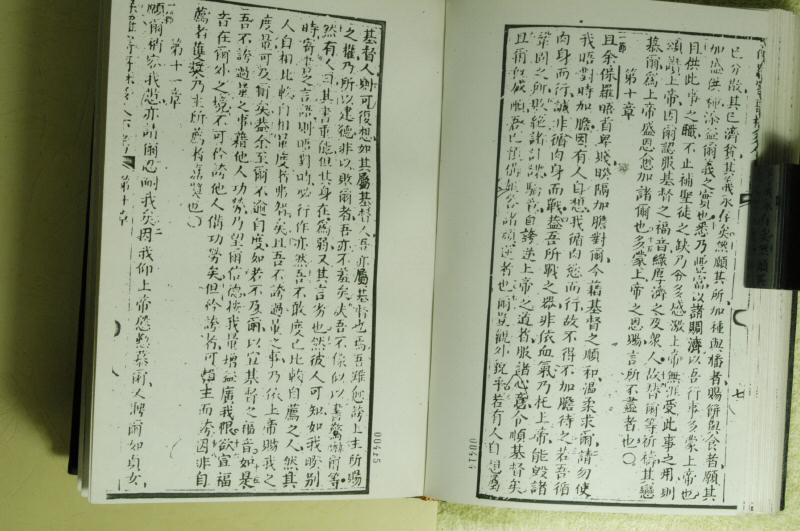 已分散其已濟貧其義永存矣無願其所加種與播者賜餅與食者願其
加盛供種添益爾義之實也悉乃豐富以諸賙濟以吾行事多蒙上帝也
因供此事之職不止補聖徒之缺乃令多感激上帝無涯受此事之用則
頌讚上帝因爾認服基督之福音緣厚濟之及衆人故替爾等祈禱其戀
慕爾為上帝盛恩愈加諸爾也多蒙上帝之恩賜言所不盡者也
第十章
且余保羅晤首卑賤暌隔加膽對爾今藉基督之順和溫柔求爾請勿使
我晤對時加膽因有人自想我循肉慾而行故不得不加膽待之若吾循
肉身而行誠非循肉身而戰蓋吾所戰之器非依血氣乃托上帝能毀諸
鞏固之所敗絕諸計謀驕矜自誇逆上帝之道者服諸心意令順基督矣
且爾程成順吾已
諸頑逆者也爾豈觀外貌乎若有人自想屬
00424
基督人則可復想如其屬基督人吾亦屬基督也焉吾雖愈誇上主所賜
之權乃所以建德非以敗爾者吾亦不羞矣夫吾不像似以書驚嚇爾等
然有人曰其書重能但其身在為弱又其言劣也然彼人可知如我暌別
時寄書之言語則晤對時必行作亦然吾不敢度己比較自薦之人然其
人自相比較自相量度者弗智矣且吾不誇過量之事乃依上帝賜我之
度量可及爾矣蓋余至爾不逾自度如若不及爾以宣基督之福音如是
吾不誇過量之事藉他人功勞乃望爾信德按我量增益廣我恨欲宣福
音在爾外之境不可矜誇他人偹功勞矣但矜誇者可
主而誇因非自
薦者獲獎乃主所薦者蒙獎也
第十一章
願爾稍容我愆亦請爾忍耐我矣因我仰上帝慇懃慕爾人聘爾如貞女
第十章
00425